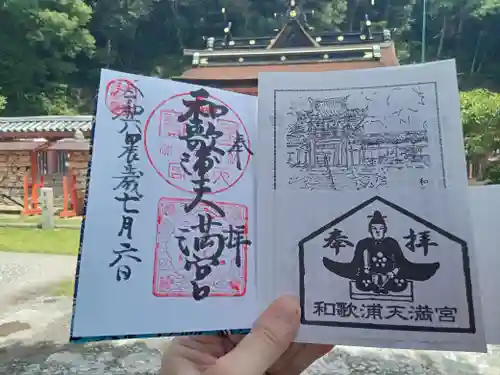 奉拝
和歌浦天満宮
令和八丙午歳七月六日
奉拝
和歌浦天満宮
和